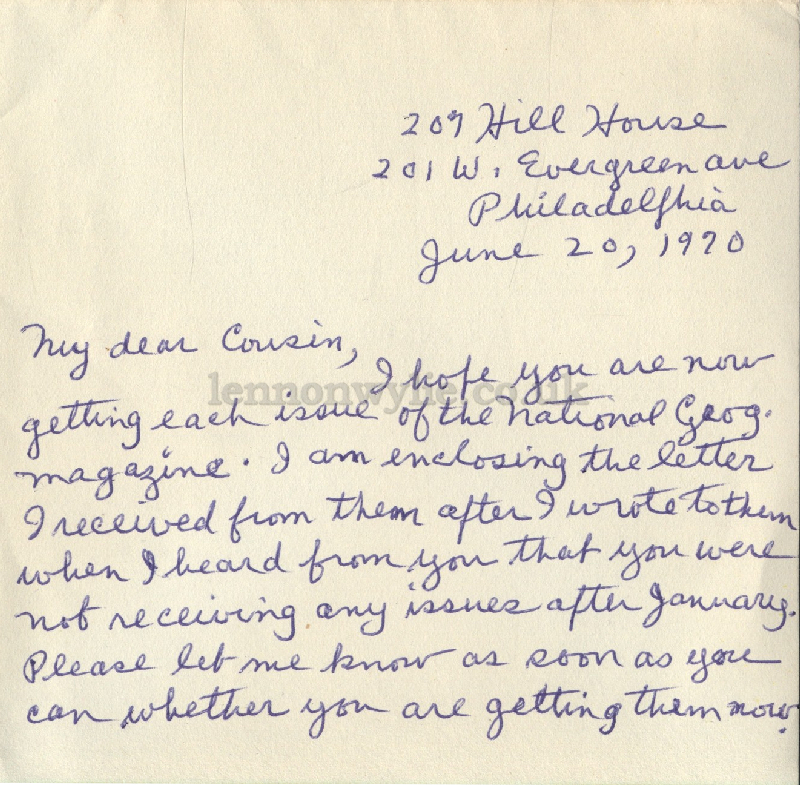 209 Hill House
201 W. Evergreen ave
Philadelphia
June 20, 1970
My dear Cousin,
I hope you are now
lennonwylie.co.uk
getting each issue of the National Geog.
magazine. I am enclosing the letter
I received from them after I wrote to them
when I heard from you that you were
not receiving any issues after January.
Please let me know as soon as you
can whether you are getting them now.